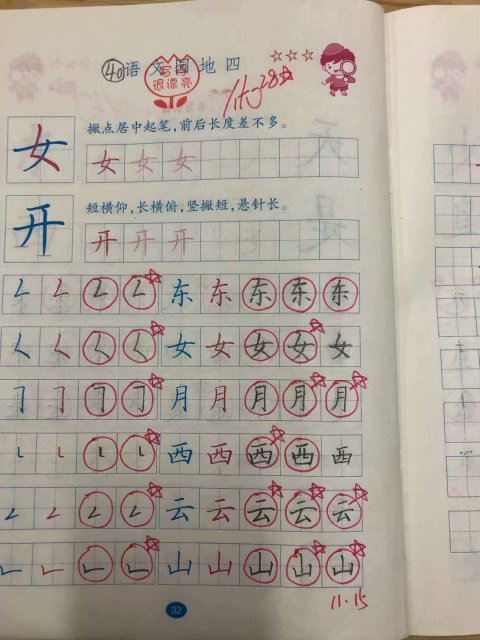 40 语文园地四
写得
很漂亮
女 撇点居中起笔，前后长度差不多。
女 女 女
开 短横仰，长横俯，竖撇短，悬针长。
开 开 开
东 东 东 东 东
女 女 女 女 女
月 月 月 月 月
西 西 西 西 西
云 云 云 云 云
山 山 山 山 山
32
11.15